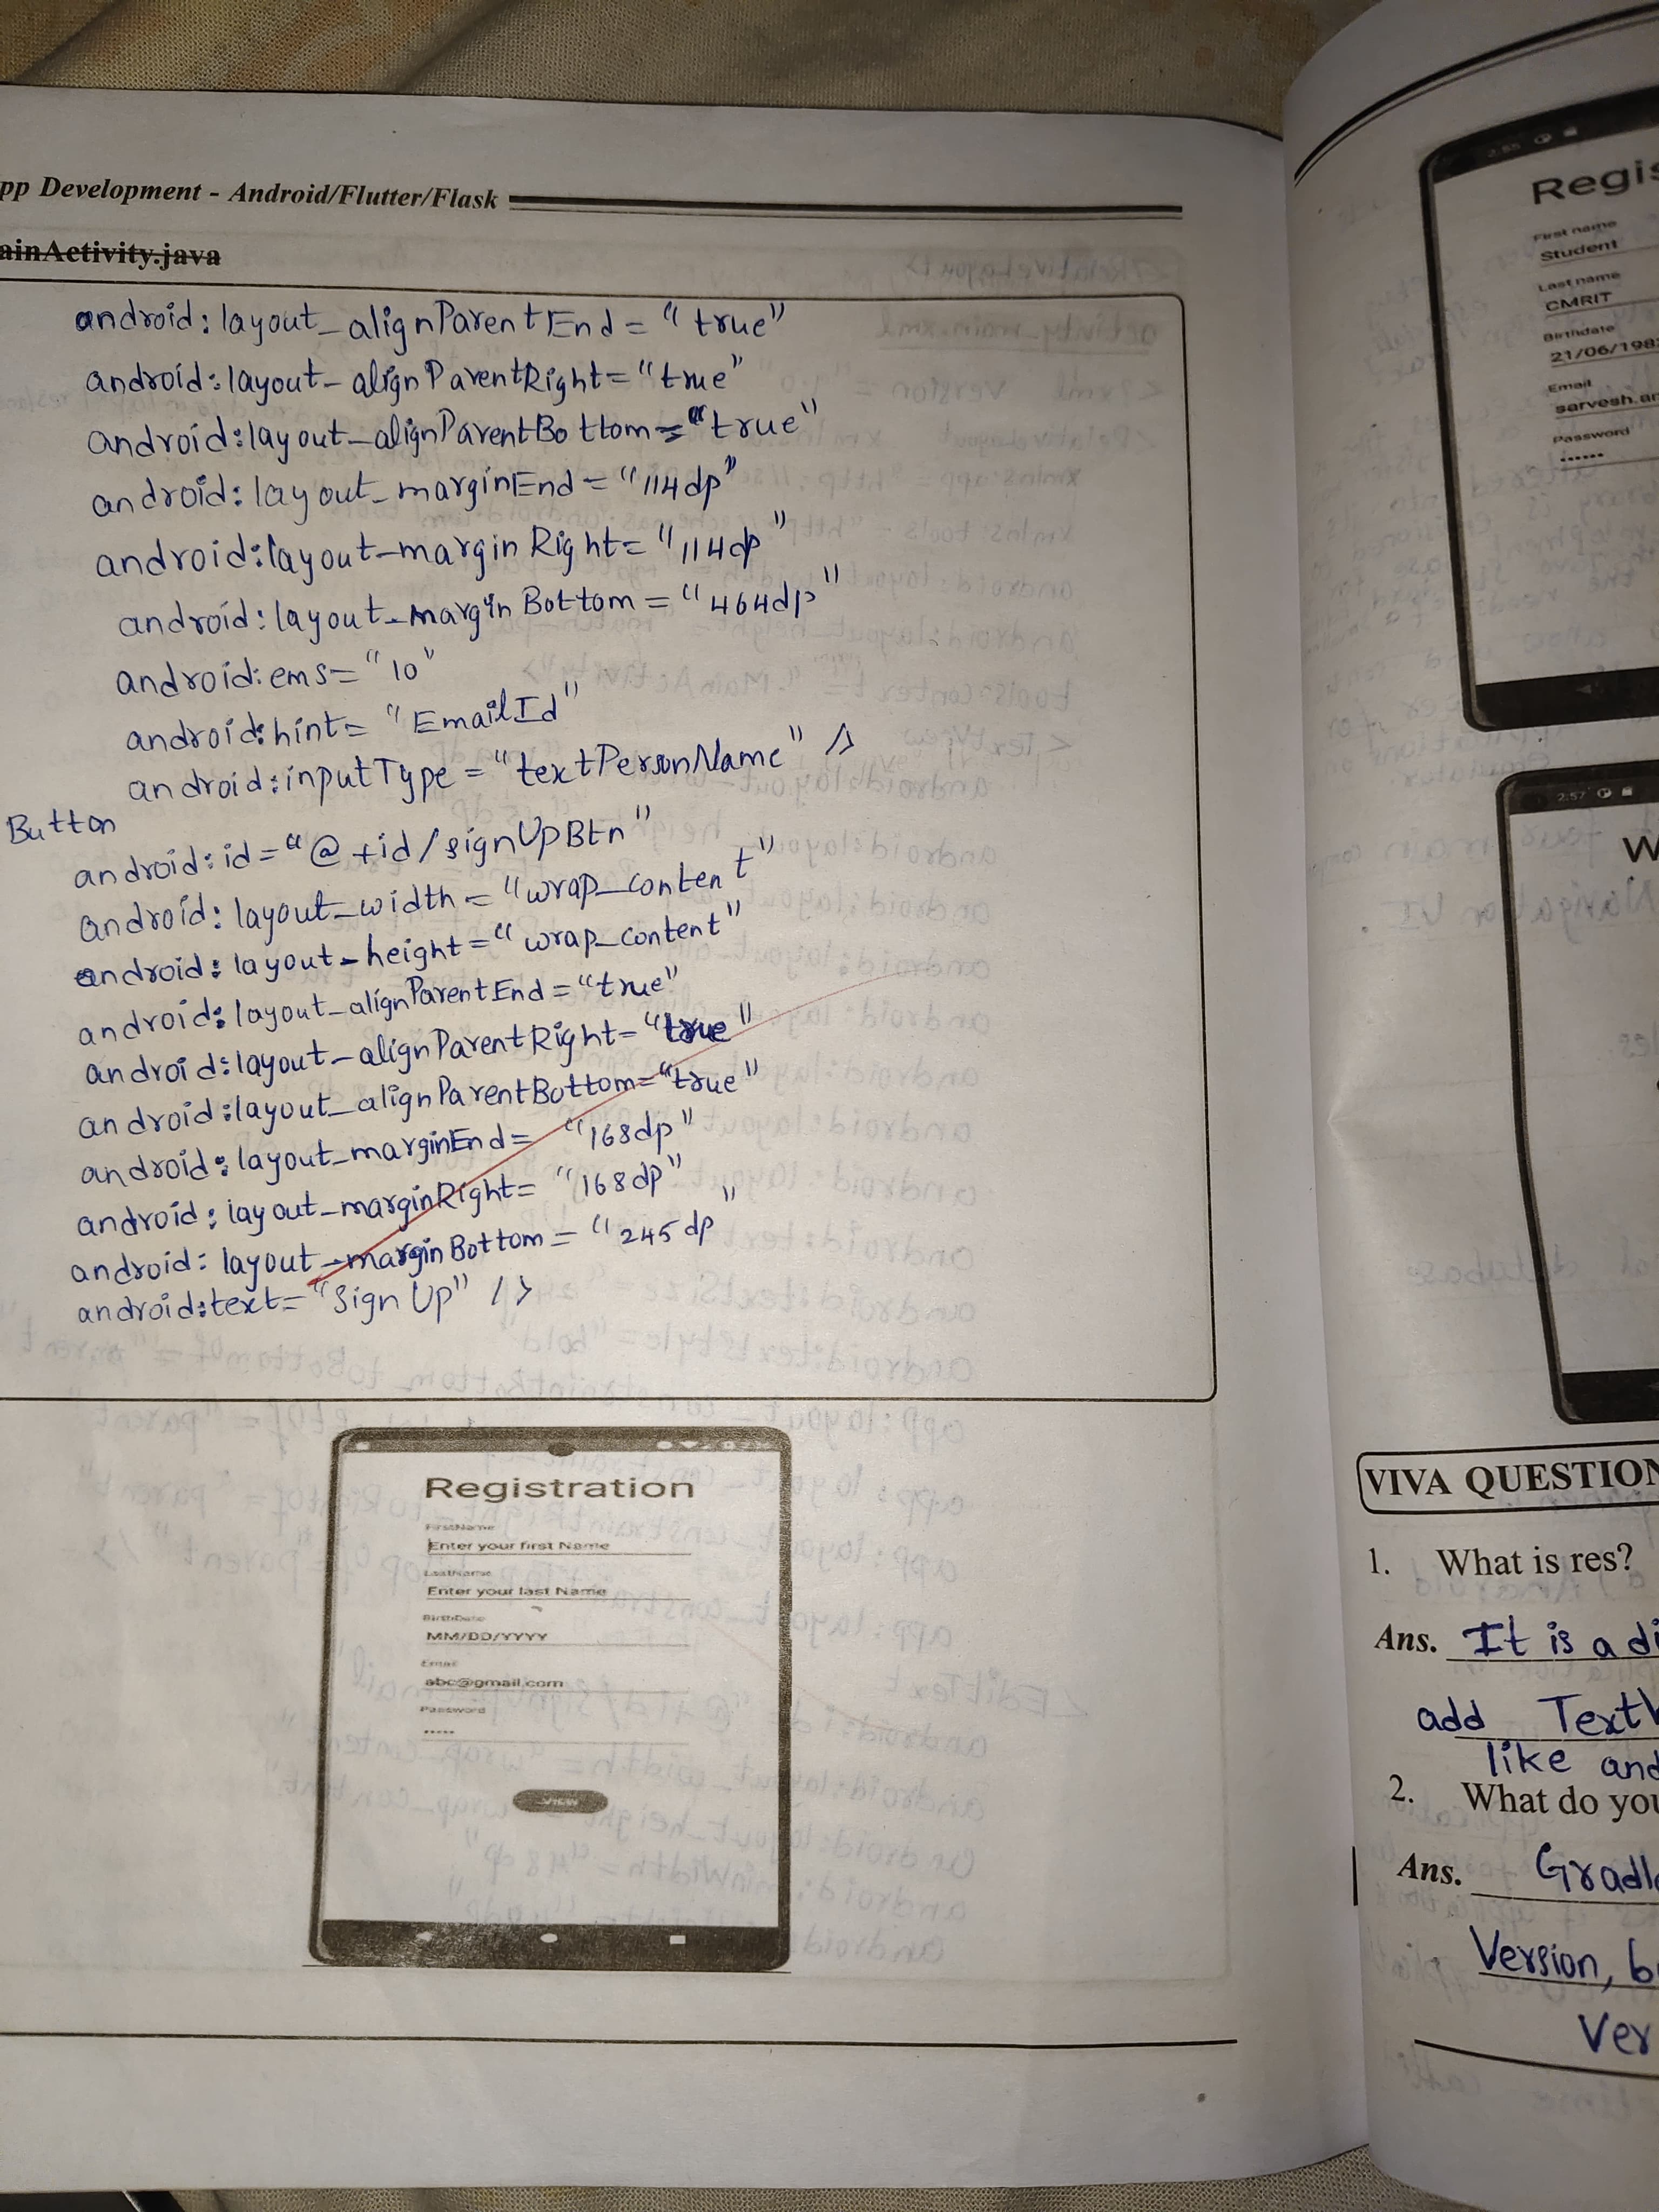 pp Development - Android/Flutter/Flask
ainActivity.java
android:layout_alignParentEnd="true"
android:layout_alignParentRight="true"
android:layout_alignParentBottom="true"
android:layout_marginEnd="114dp"
android:layout_marginRight="114dp"
android:layout_marginBottom="464dp"
android:ems="10"
android:hint="EmailId"
android:inputType="textPersonName" />
Button
android:id="@+id/signUpBtn"
android:layout_width="wrap_content"
android:layout_height="wrap_content"
android:layout_alignParentEnd="true"
android:layout_alignParentRight="true"
android:layout_alignParentBottom="true"
android:layout_marginEnd="168dp"
android:layout_marginRight="168dp"
android:layout_marginBottom="245dp"
android:text="Sign Up" />
Registration
FirstName
Enter your first Name
LastName
Enter your last Name
BirthDate
MM/DD/YYYY
Email
abc@gmail.com
Password
•••••
VIEW
Regis
First name
Student
Last name
CMRIT
Birthdate
21/06/198
Email
sarvesh.ar
Password
••••••
2:57
W
VIVA QUESTION
1. What is res?
Ans. It is a di
add Text
like and
2. What do you
Ans. Gradle
Version, b
Ver